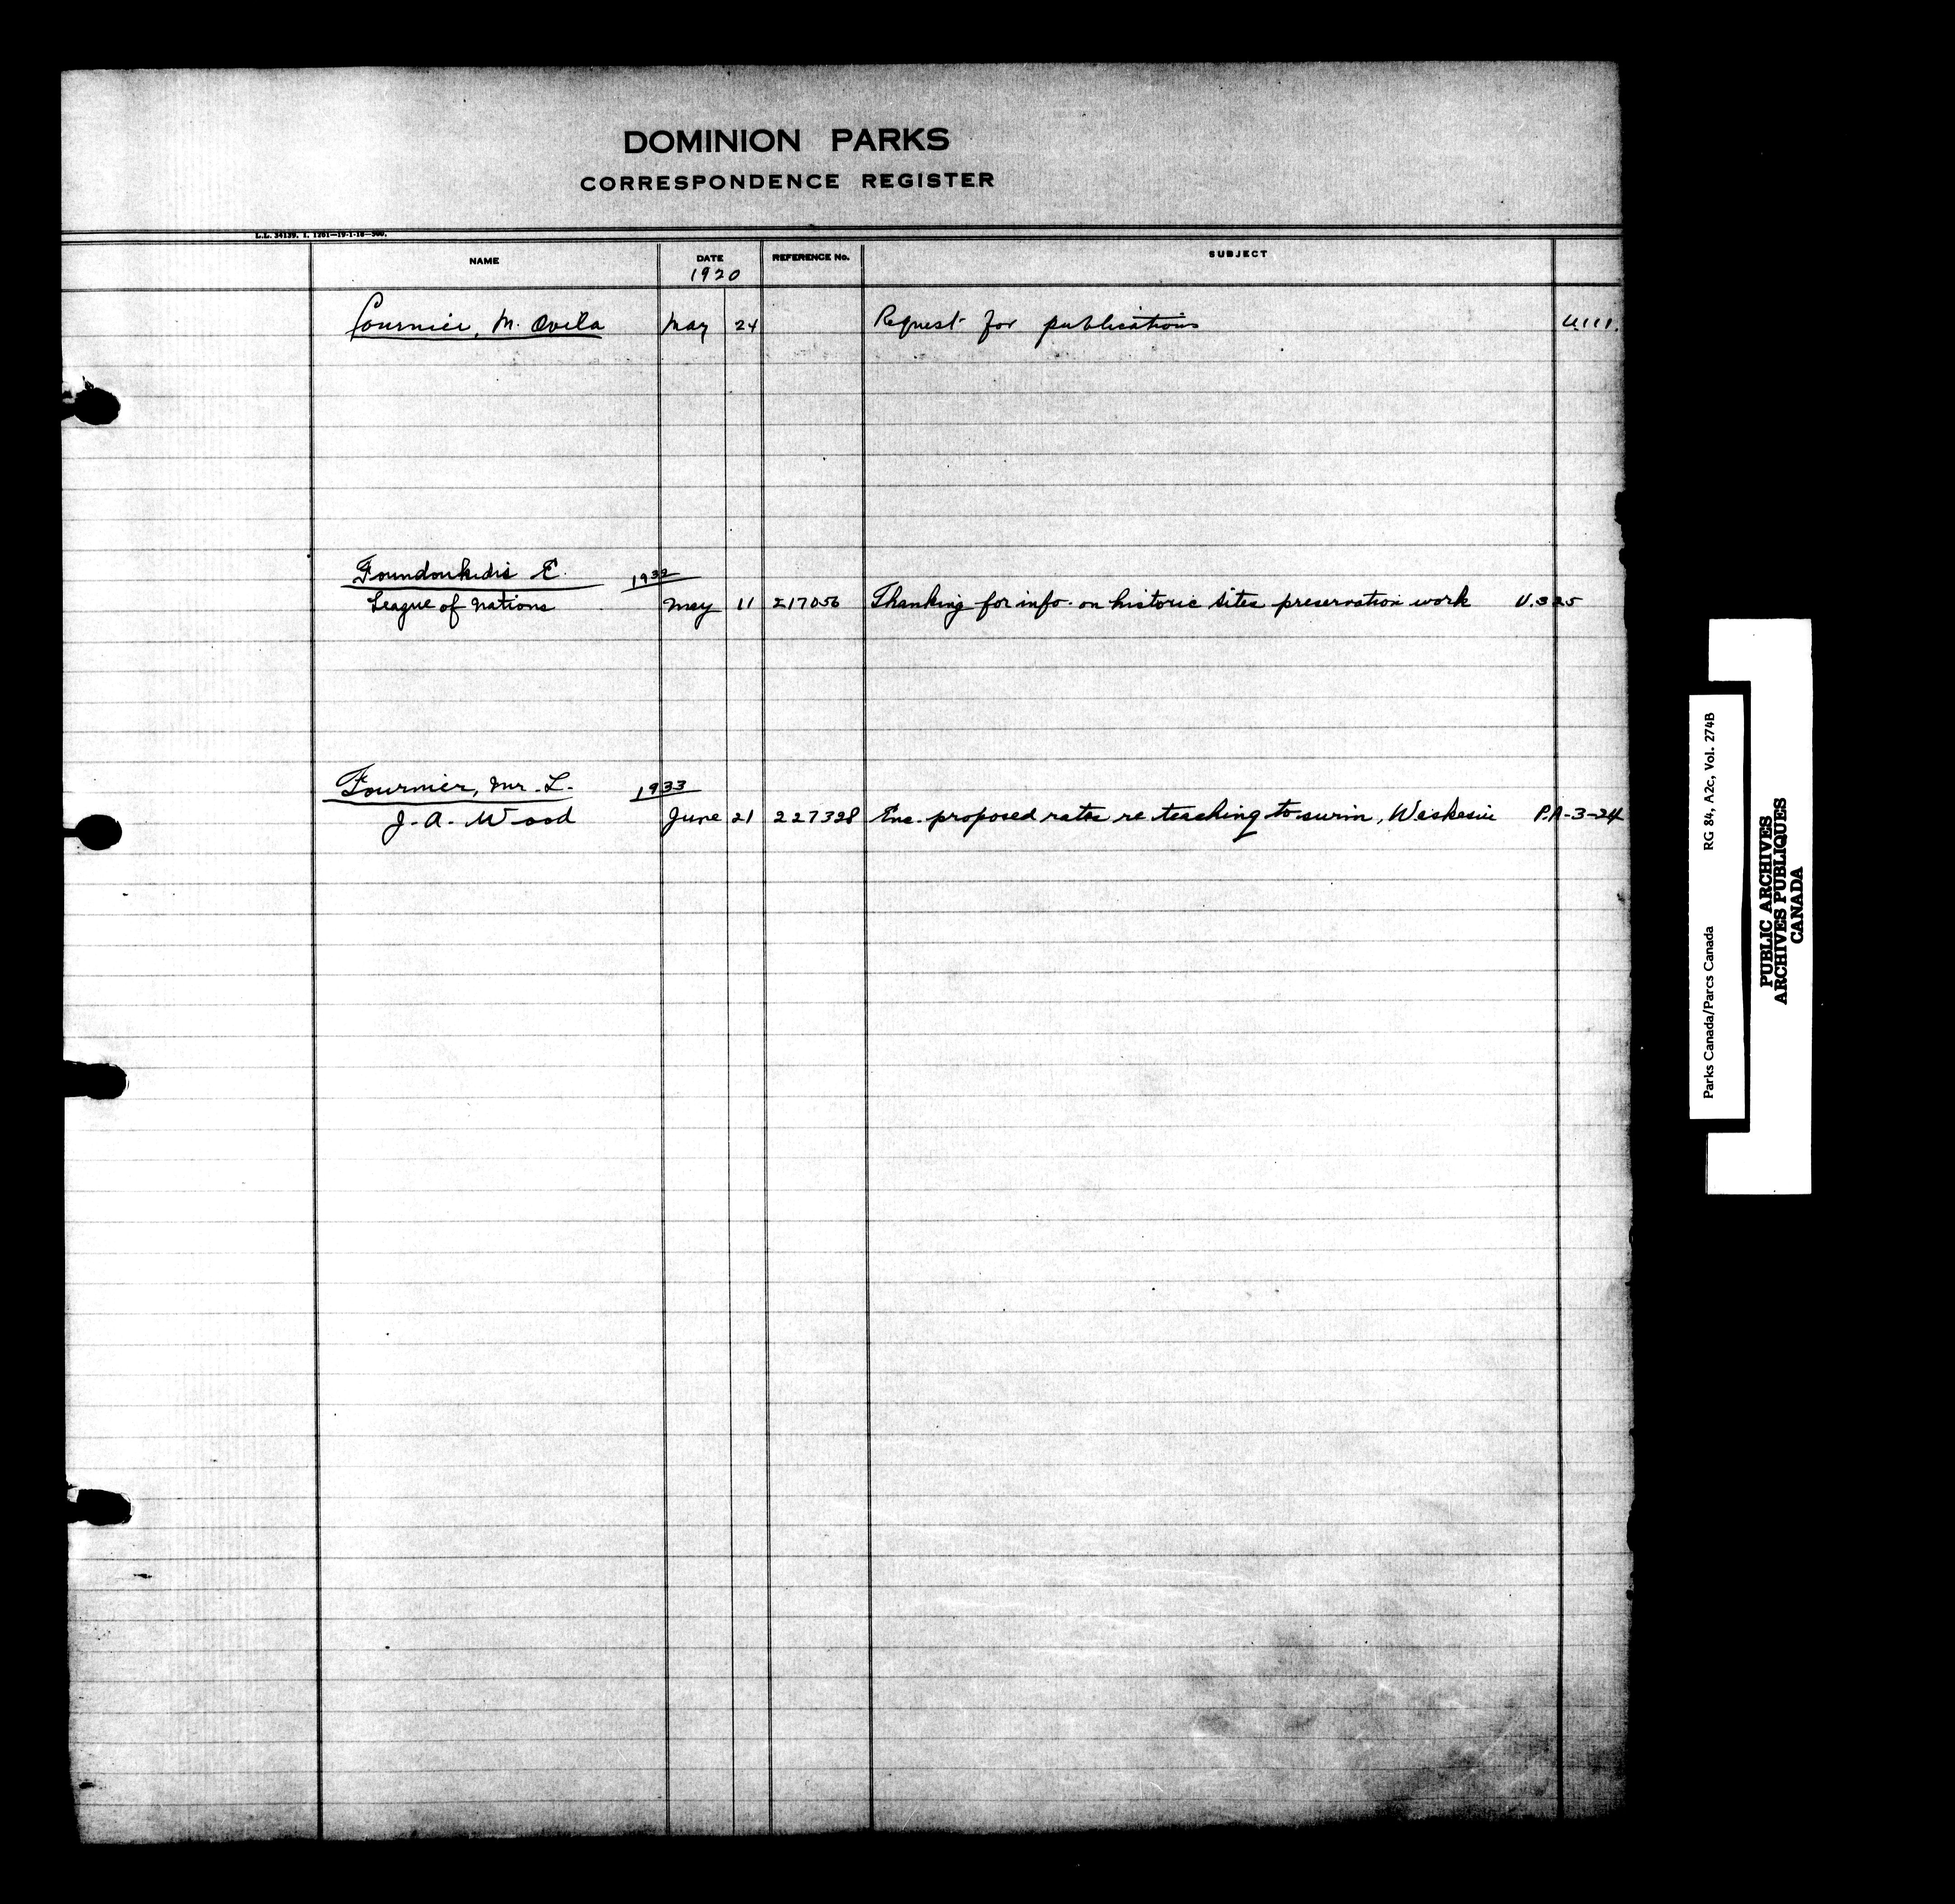 DOMINION PARKS
CORRESPONDENCE REGISTER
L.L. 34139. 1. 1201—19-1-18—500.
NAME DATE REFERENCE No. SUBJECT
1920
Fournier, M. Ovila May 24 Request for publications U.111.
Foundoukidis E. 1932
League of Nations May 11 217056 Thanking for info. on historic sites preservation work U.325
Fournier, Mr. L. 1933
J. A. Wood June 21 227328 Enc. proposed rates re teaching to swim, Waskesiu P.A-3-24
Parks Canada/Parcs Canada RG 84, A2c, Vol. 274B
PUBLIC ARCHIVES
ARCHIVES PUBLIQUES
CANADA